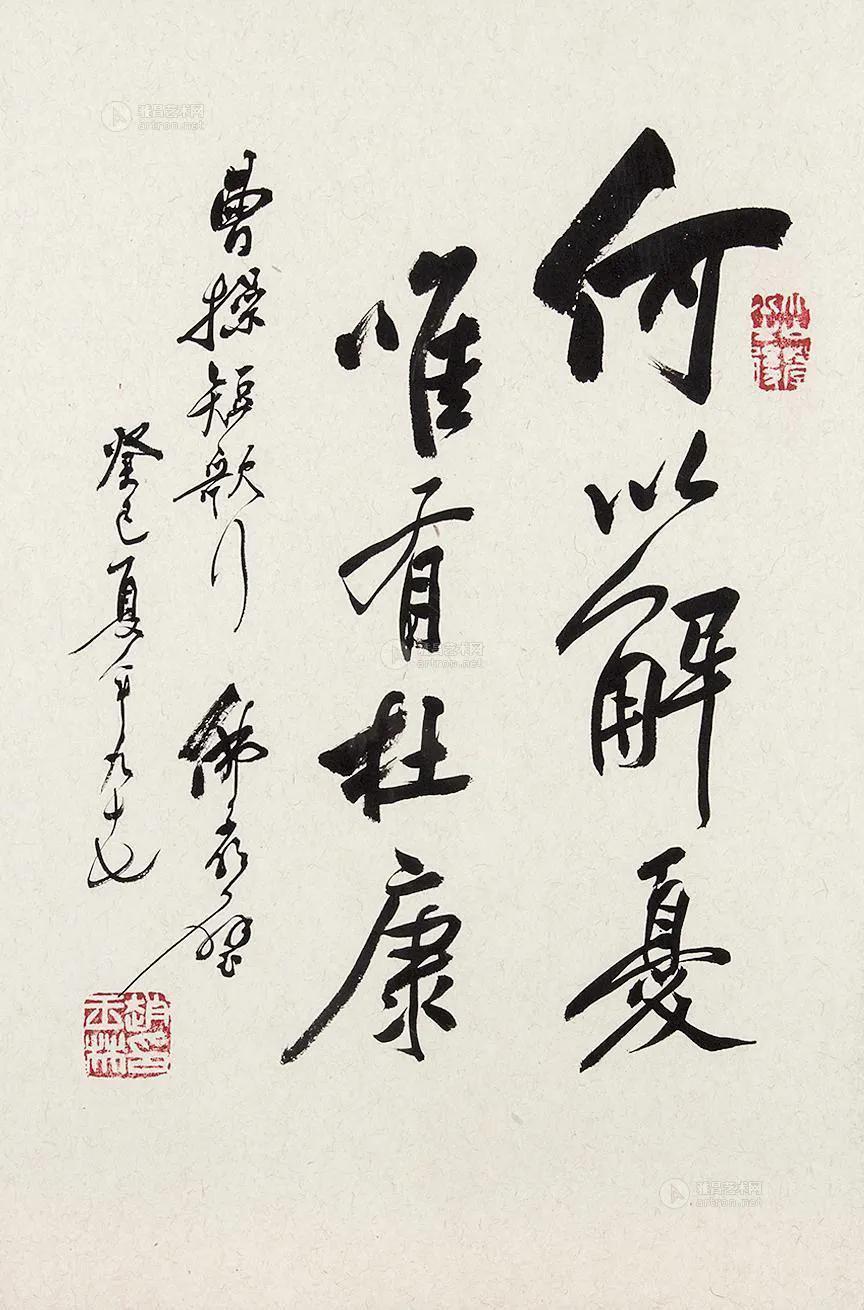 何以解憂
唯有杜康
曹操短歌行 佛
癸巳夏年九十七
趙玉林印
雅昌艺术网
artron.net
雅昌艺术网
artron.net
雅昌艺术网
artron.net